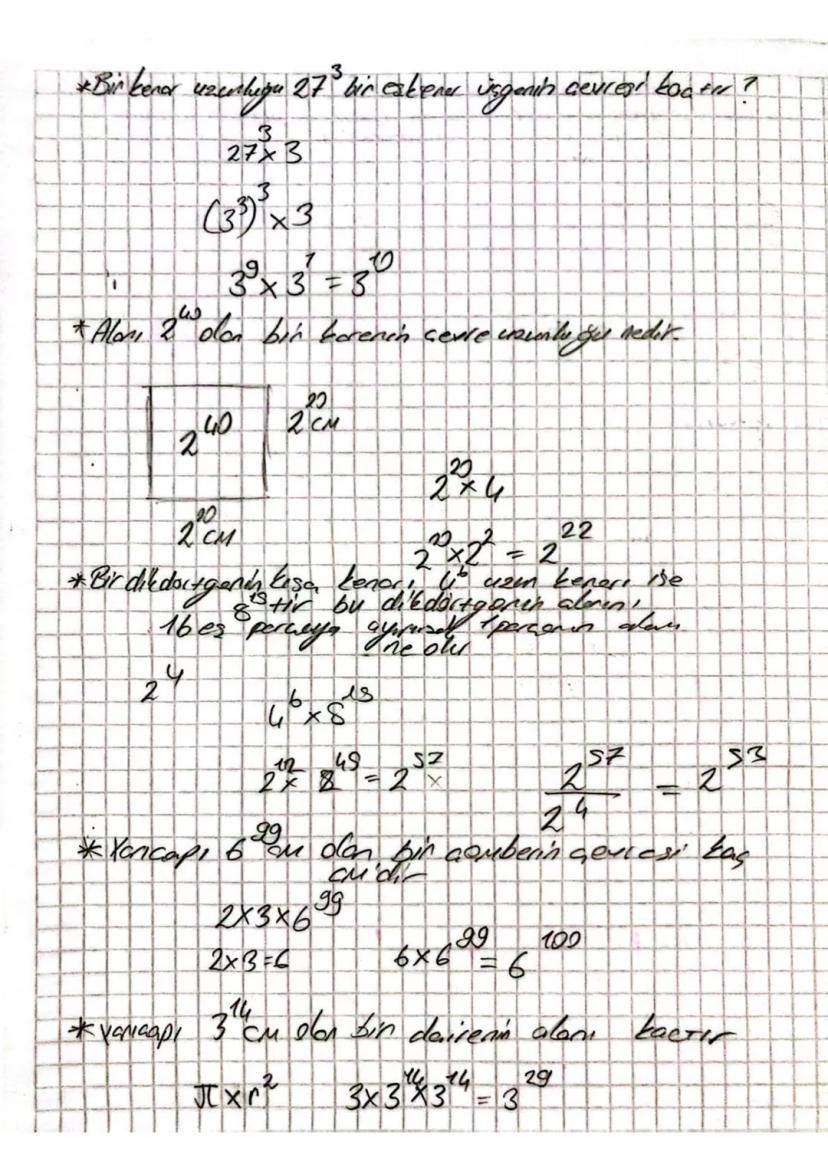 *Bir kenar uzunluğu 27³ bir eşkenar üçgenin çevresi kaçtır?
27³x3
(3³)³x3
3⁹x3¹=3¹⁰
*Alanı 2⁴⁰ olan bir karenin çevre uzunluğu nedir.
2⁴⁰ 2²⁰cm
2²⁰x4
2²⁰cm
2²⁰x2²=2²²
*Bir dikdörtgenin kısa kenarı 4⁶ uzun kenarı ise
8¹⁵tir bu dikdörtgenin alanını
16 eş parçaya ayırırsak 1parçanın alanı
ne olur
2⁴
4⁶x8¹⁵
2¹²x 2⁴⁵=2⁵⁷x 2⁵⁷/2⁴ = 2⁵³
*Yarıçapı 6⁹⁹cm olan bir çemberin çevresi kaç
cm'dir
2x3x6⁹⁹
2x3=6 6x6⁹⁹=6¹⁰⁰
*yarıçapı 3¹⁴cm olan bir dairenin alanı kaçtır
πxr² 3x3¹⁴x3¹⁴=3²⁹